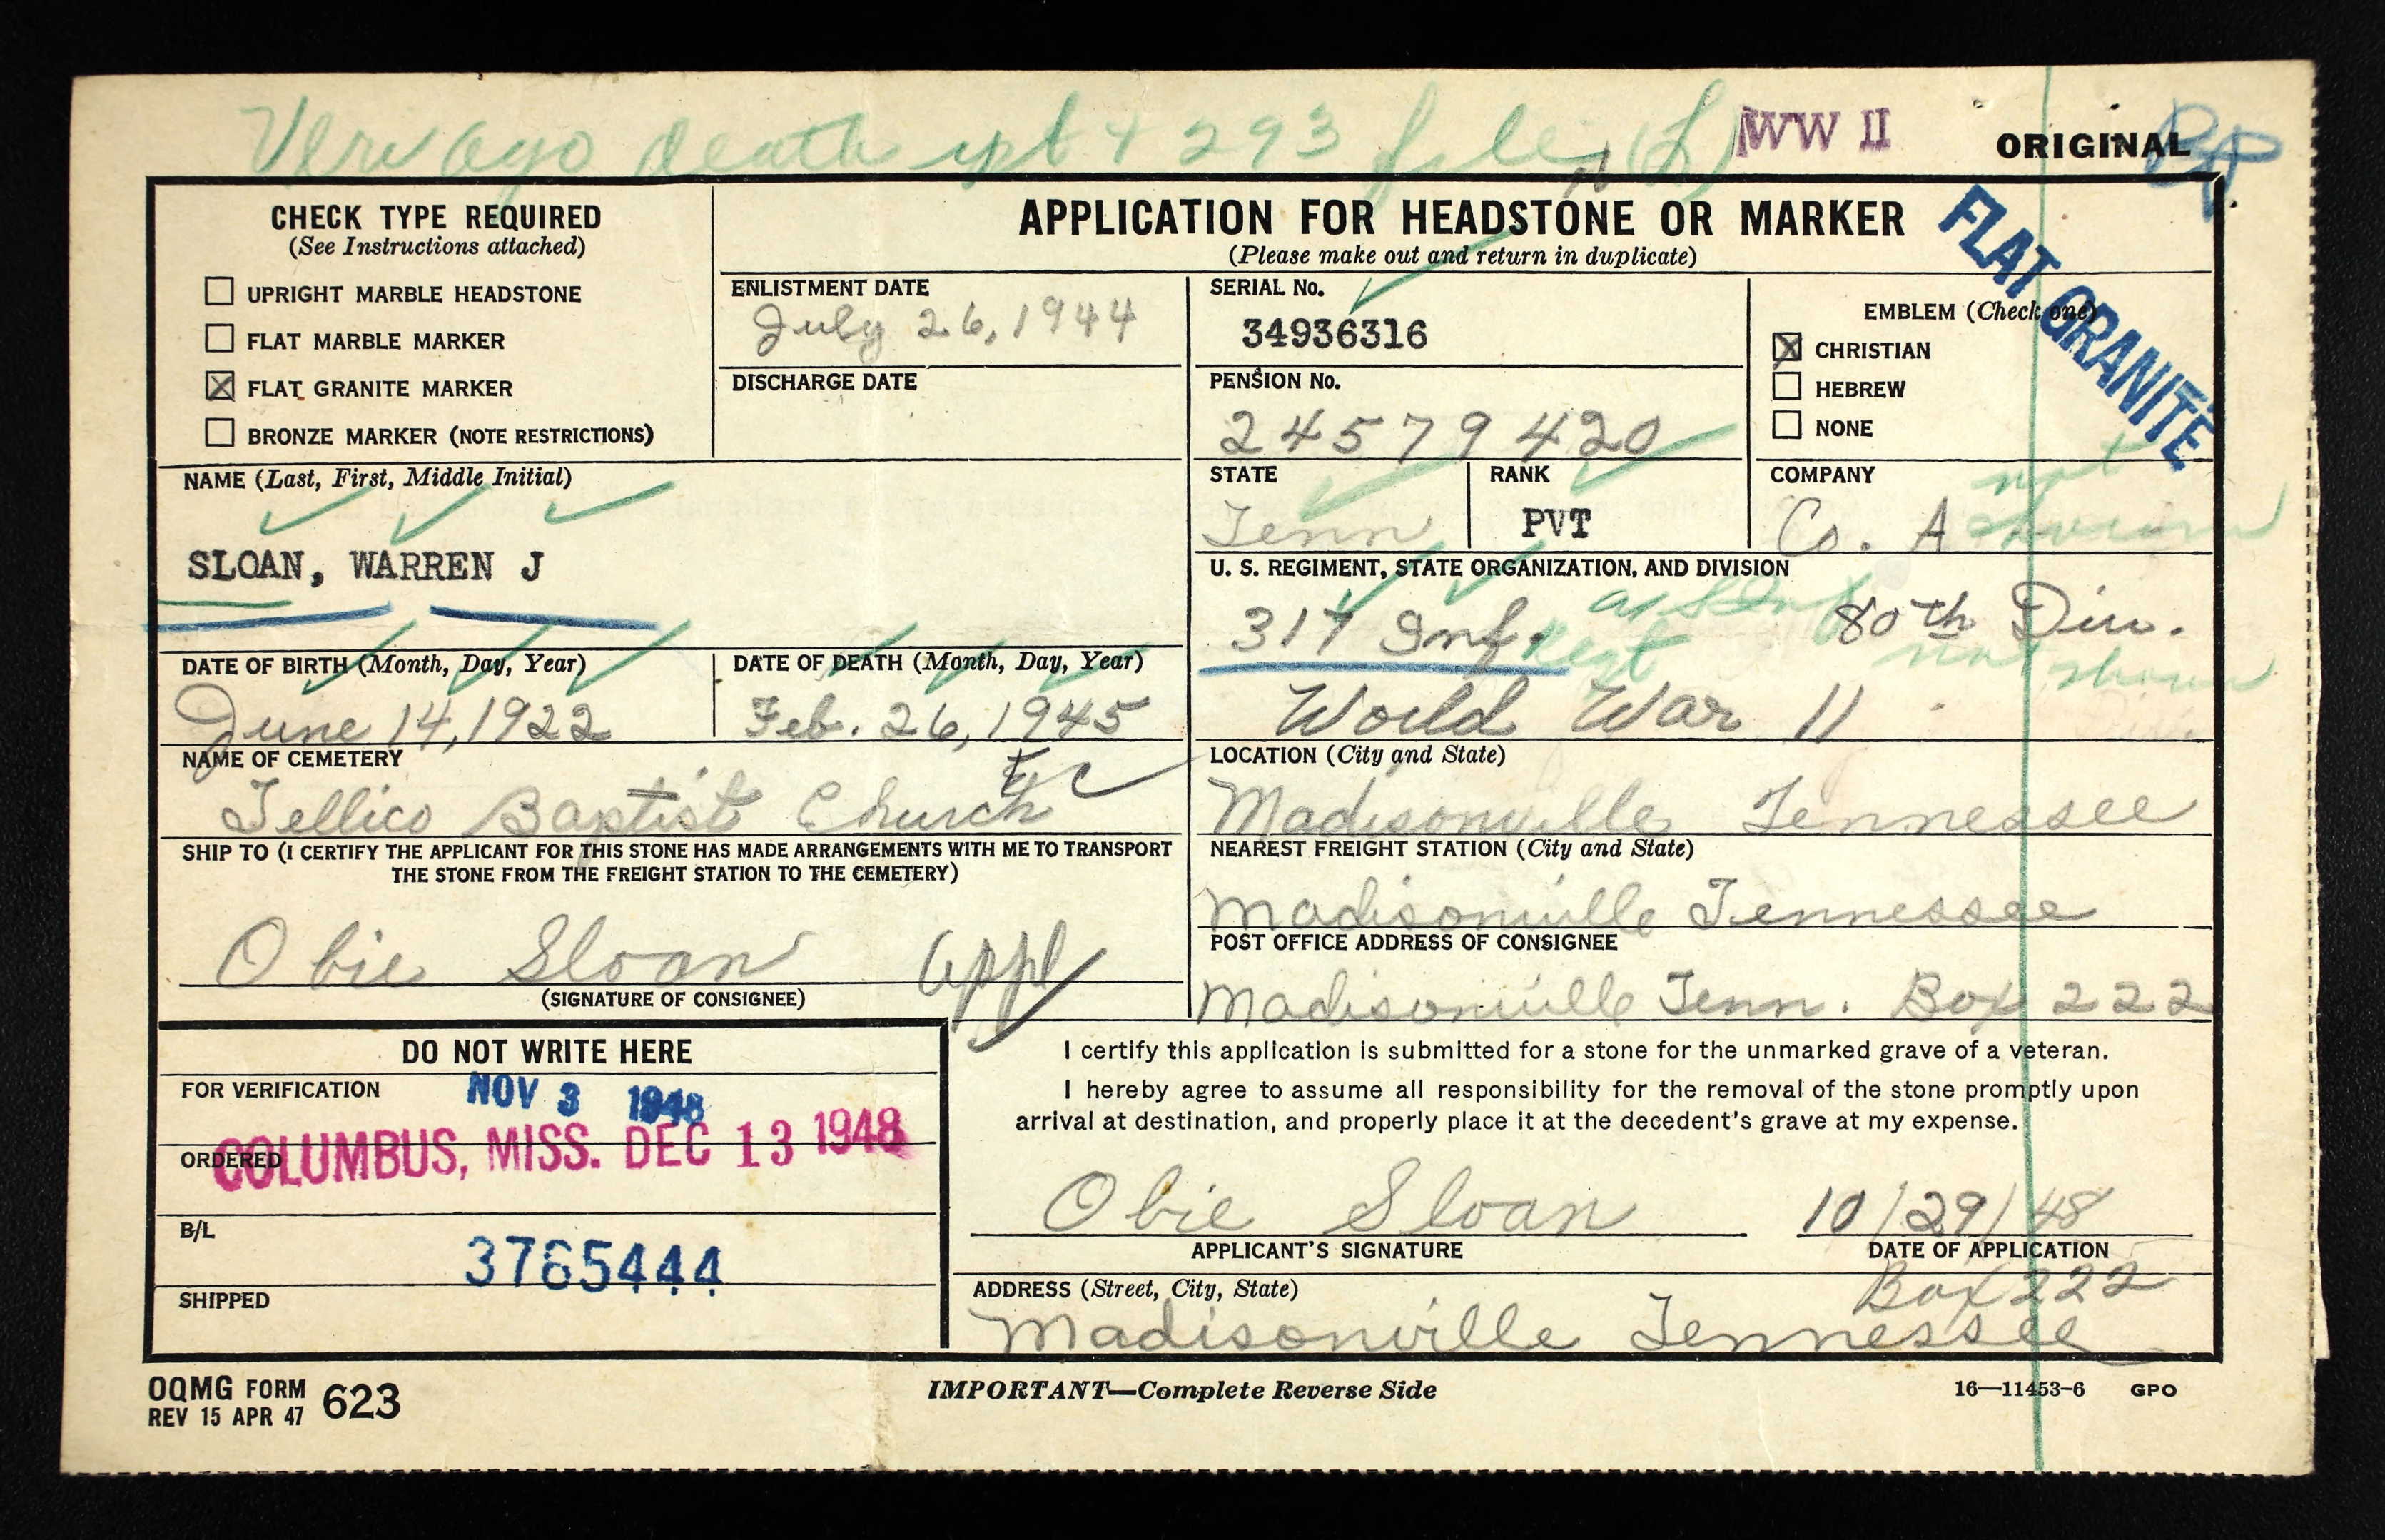 Veri ago death rpt + 293 file (L) WW II ORIGINAL
CHECK TYPE REQUIRED
(See Instructions attached)
☐ UPRIGHT MARBLE HEADSTONE
☐ FLAT MARBLE MARKER
☒ FLAT GRANITE MARKER
☐ BRONZE MARKER (NOTE RESTRICTIONS)
APPLICATION FOR HEADSTONE OR MARKER
(Please make out and return in duplicate)
FLAT GRANITE
ENLISTMENT DATE
July 26, 1944
DISCHARGE DATE
SERIAL No.
34936316
PENSION No.
24579420
EMBLEM (Check one)
☒ CHRISTIAN
☐ HEBREW
☐ NONE
NAME (Last, First, Middle Initial)
SLOAN, WARREN J
STATE
Tenn
RANK
PVT
COMPANY
Co. A not shown
U. S. REGIMENT, STATE ORGANIZATION, AND DIVISION
317 Inf. 80th Div.
not shown
World War II
DATE OF BIRTH (Month, Day, Year)
June 14, 1922
DATE OF DEATH (Month, Day, Year)
Feb. 26, 1945
NAME OF CEMETERY
Tellico Baptist Church
LOCATION (City and State)
Madisonville Tennessee
SHIP TO (I CERTIFY THE APPLICANT FOR THIS STONE HAS MADE ARRANGEMENTS WITH ME TO TRANSPORT
THE STONE FROM THE FREIGHT STATION TO THE CEMETERY)
Obie Sloan appl
(SIGNATURE OF CONSIGNEE)
NEAREST FREIGHT STATION (City and State)
Madisonville Tennessee
POST OFFICE ADDRESS OF CONSIGNEE
Madisonville Tenn. Box 222
DO NOT WRITE HERE
FOR VERIFICATION
NOV 3 1948
ORDERED
COLUMBUS, MISS. DEC 13 1948
B/L
3765444
SHIPPED
I certify this application is submitted for a stone for the unmarked grave of a veteran.
I hereby agree to assume all responsibility for the removal of the stone promptly upon
arrival at destination, and properly place it at the decedent's grave at my expense.
Obie Sloan 10/29/48
APPLICANT'S SIGNATURE DATE OF APPLICATION
ADDRESS (Street, City, State)
Box 222
Madisonville Tennessee
OQMG FORM 623
REV 15 APR 47
IMPORTANT—Complete Reverse Side
16—11453-6 GPO